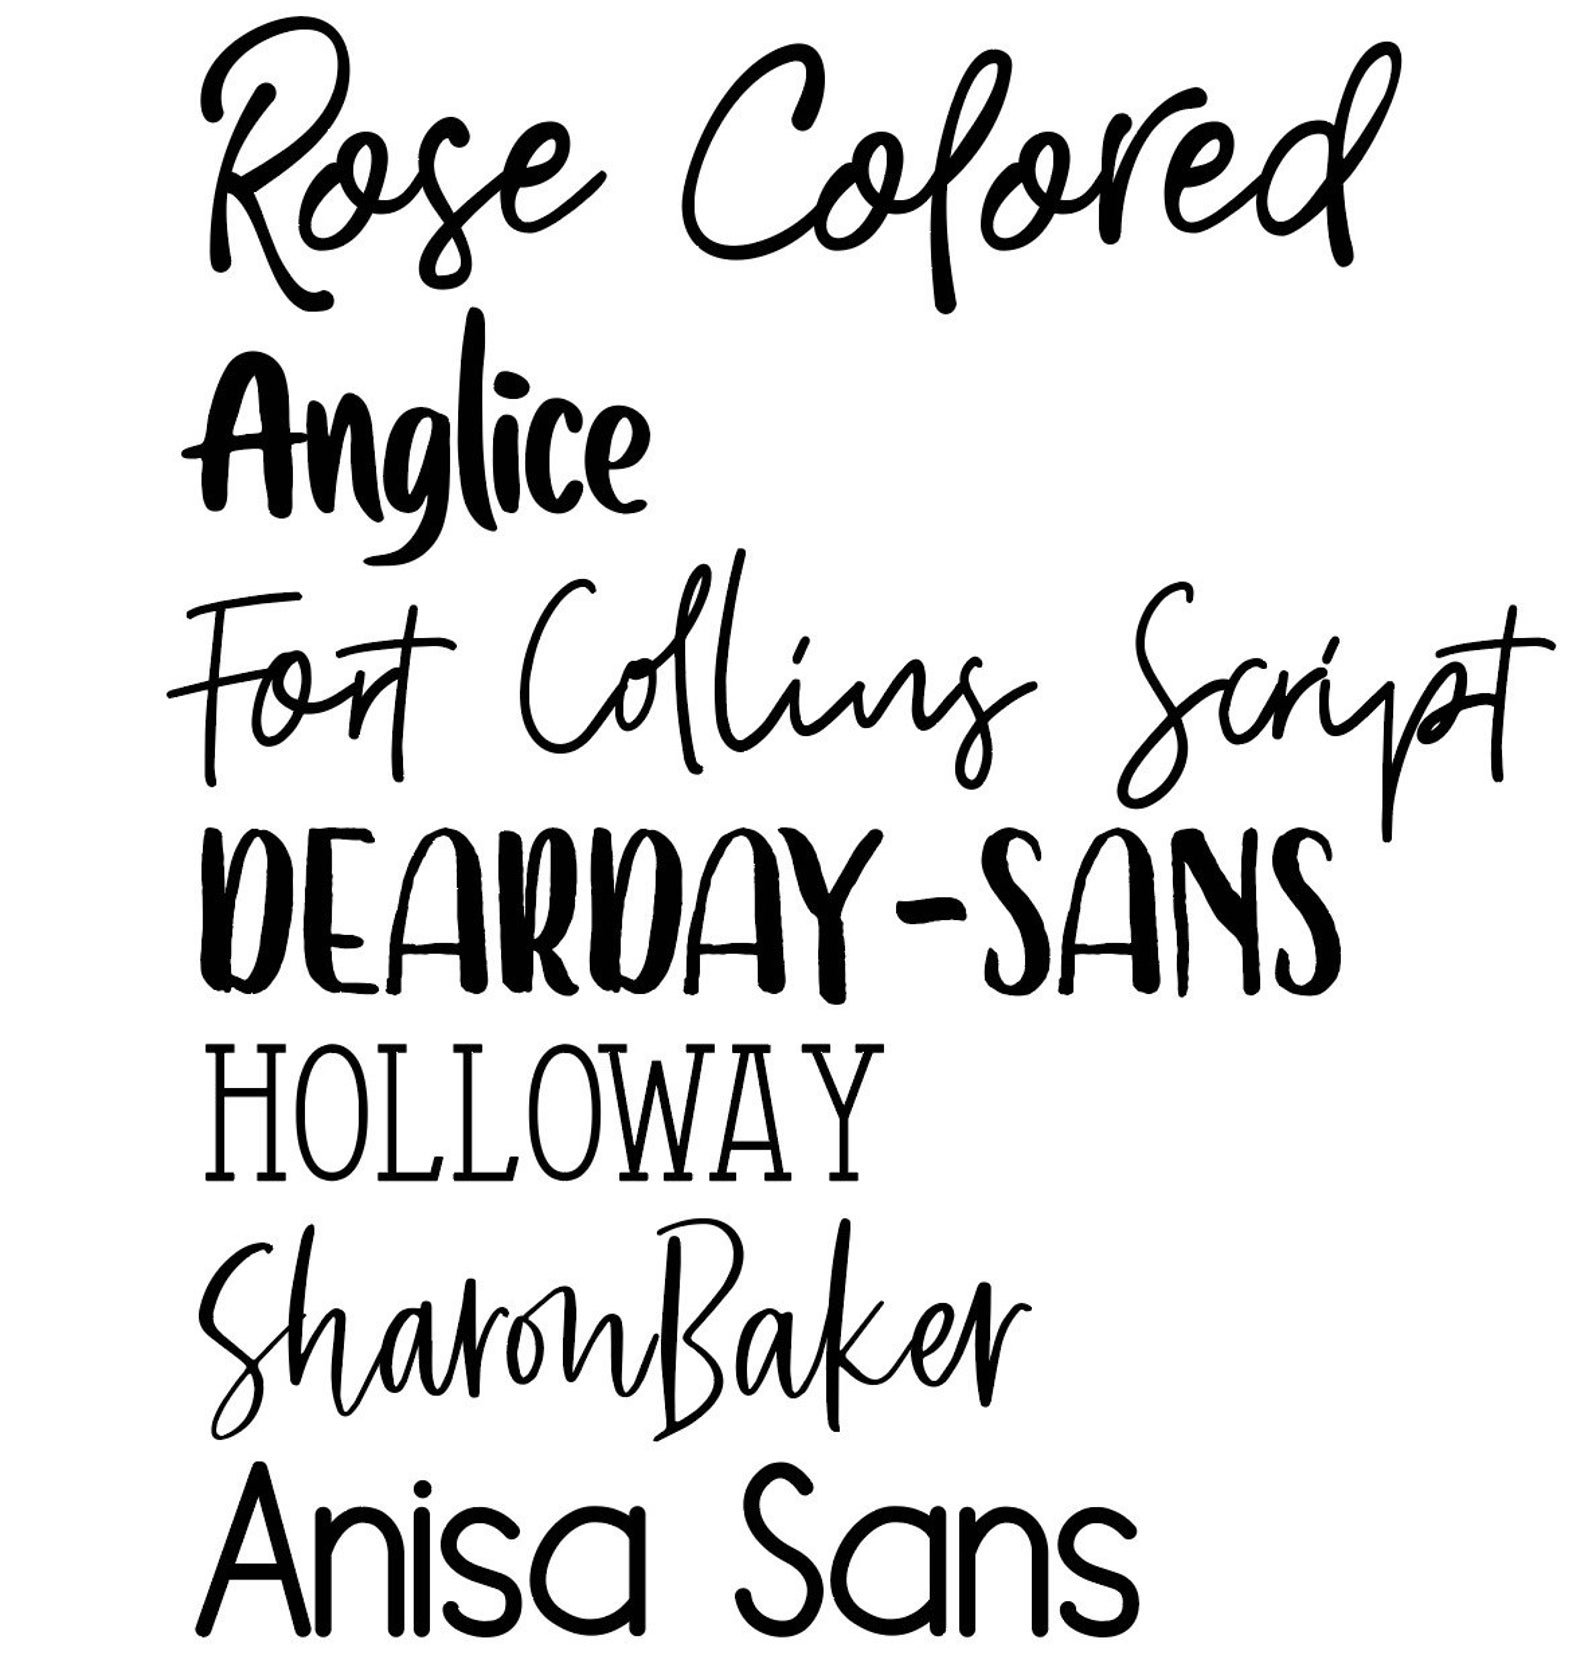 Rose Colored
Anglice
Fort Collins Script
DEARDAY-SANS
HOLLOWAY
SharonBaker
Anisa Sans